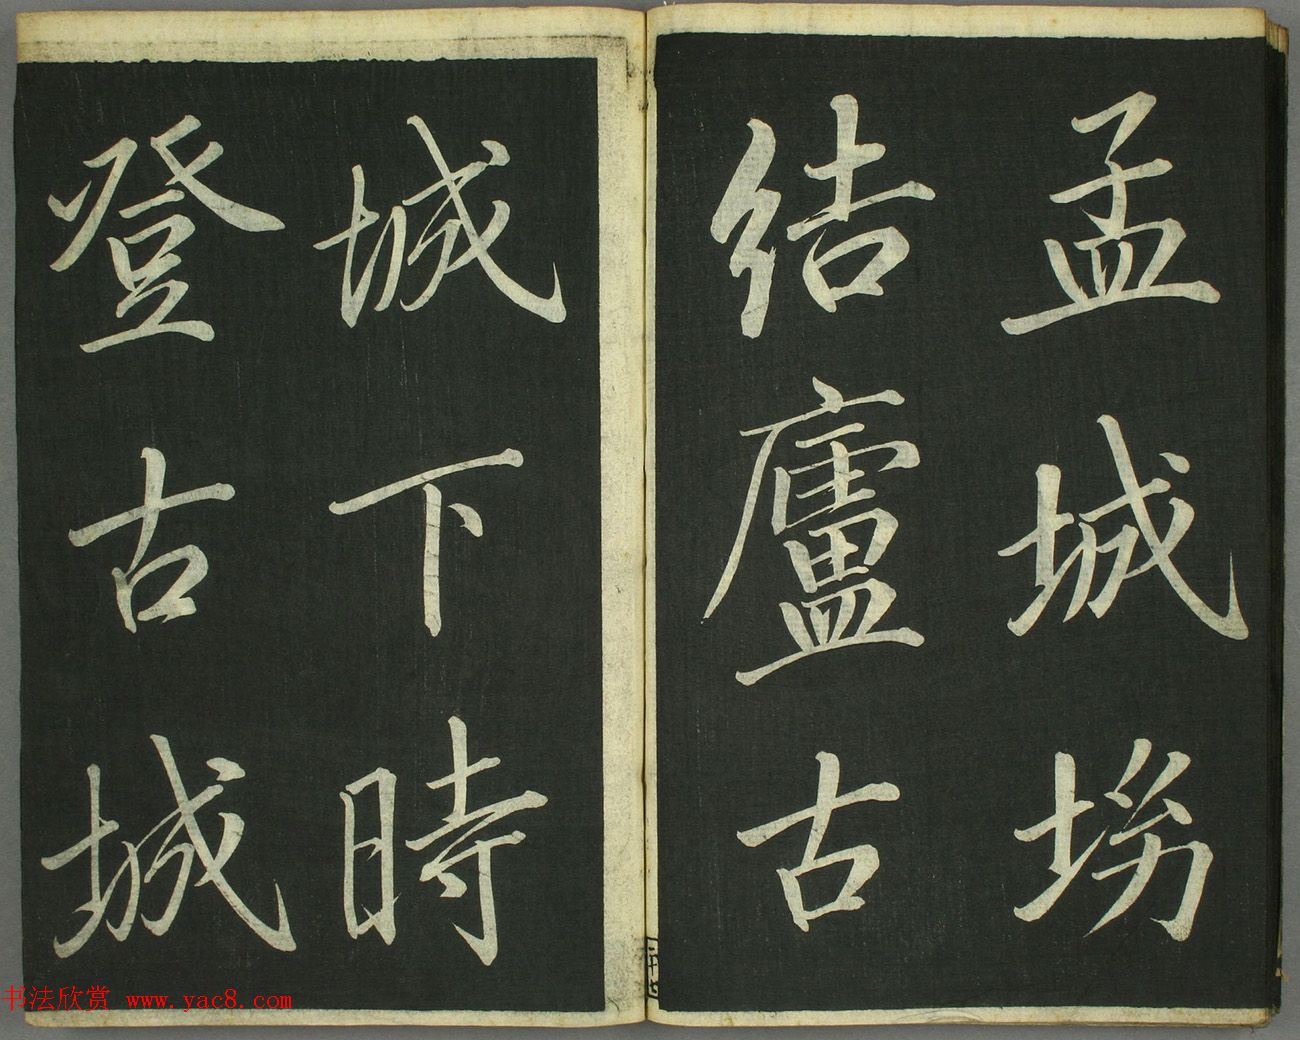 孟城坳
結廬古
城下時
登古城
书法欣赏 www.yac8.com